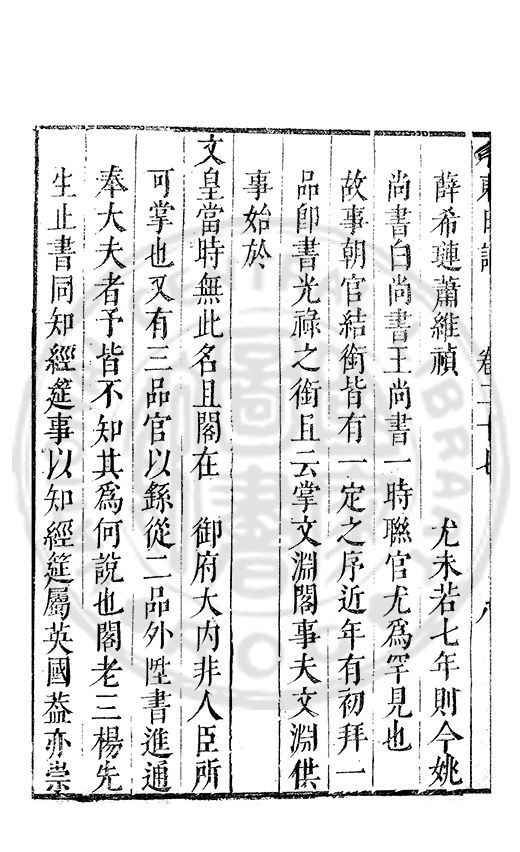 東日記 卷二十七 八
薛希璉蕭維禎 尤未若七年則今姚
尚書白尚書王尚書一時聯官尤爲罕見也
故事朝官結銜皆有一定之序近年有初拜一
品卽書光祿之銜且云掌文淵閣事夫文淵供
事始於
文皇當時無此名且閣在 御府大內非人臣所
可掌也又有三品官以錄從二品外陞書進通
奉大夫者予皆不知其爲何說也閣老三楊先
生止書同知經筵事以知經筵屬英國蓋亦崇